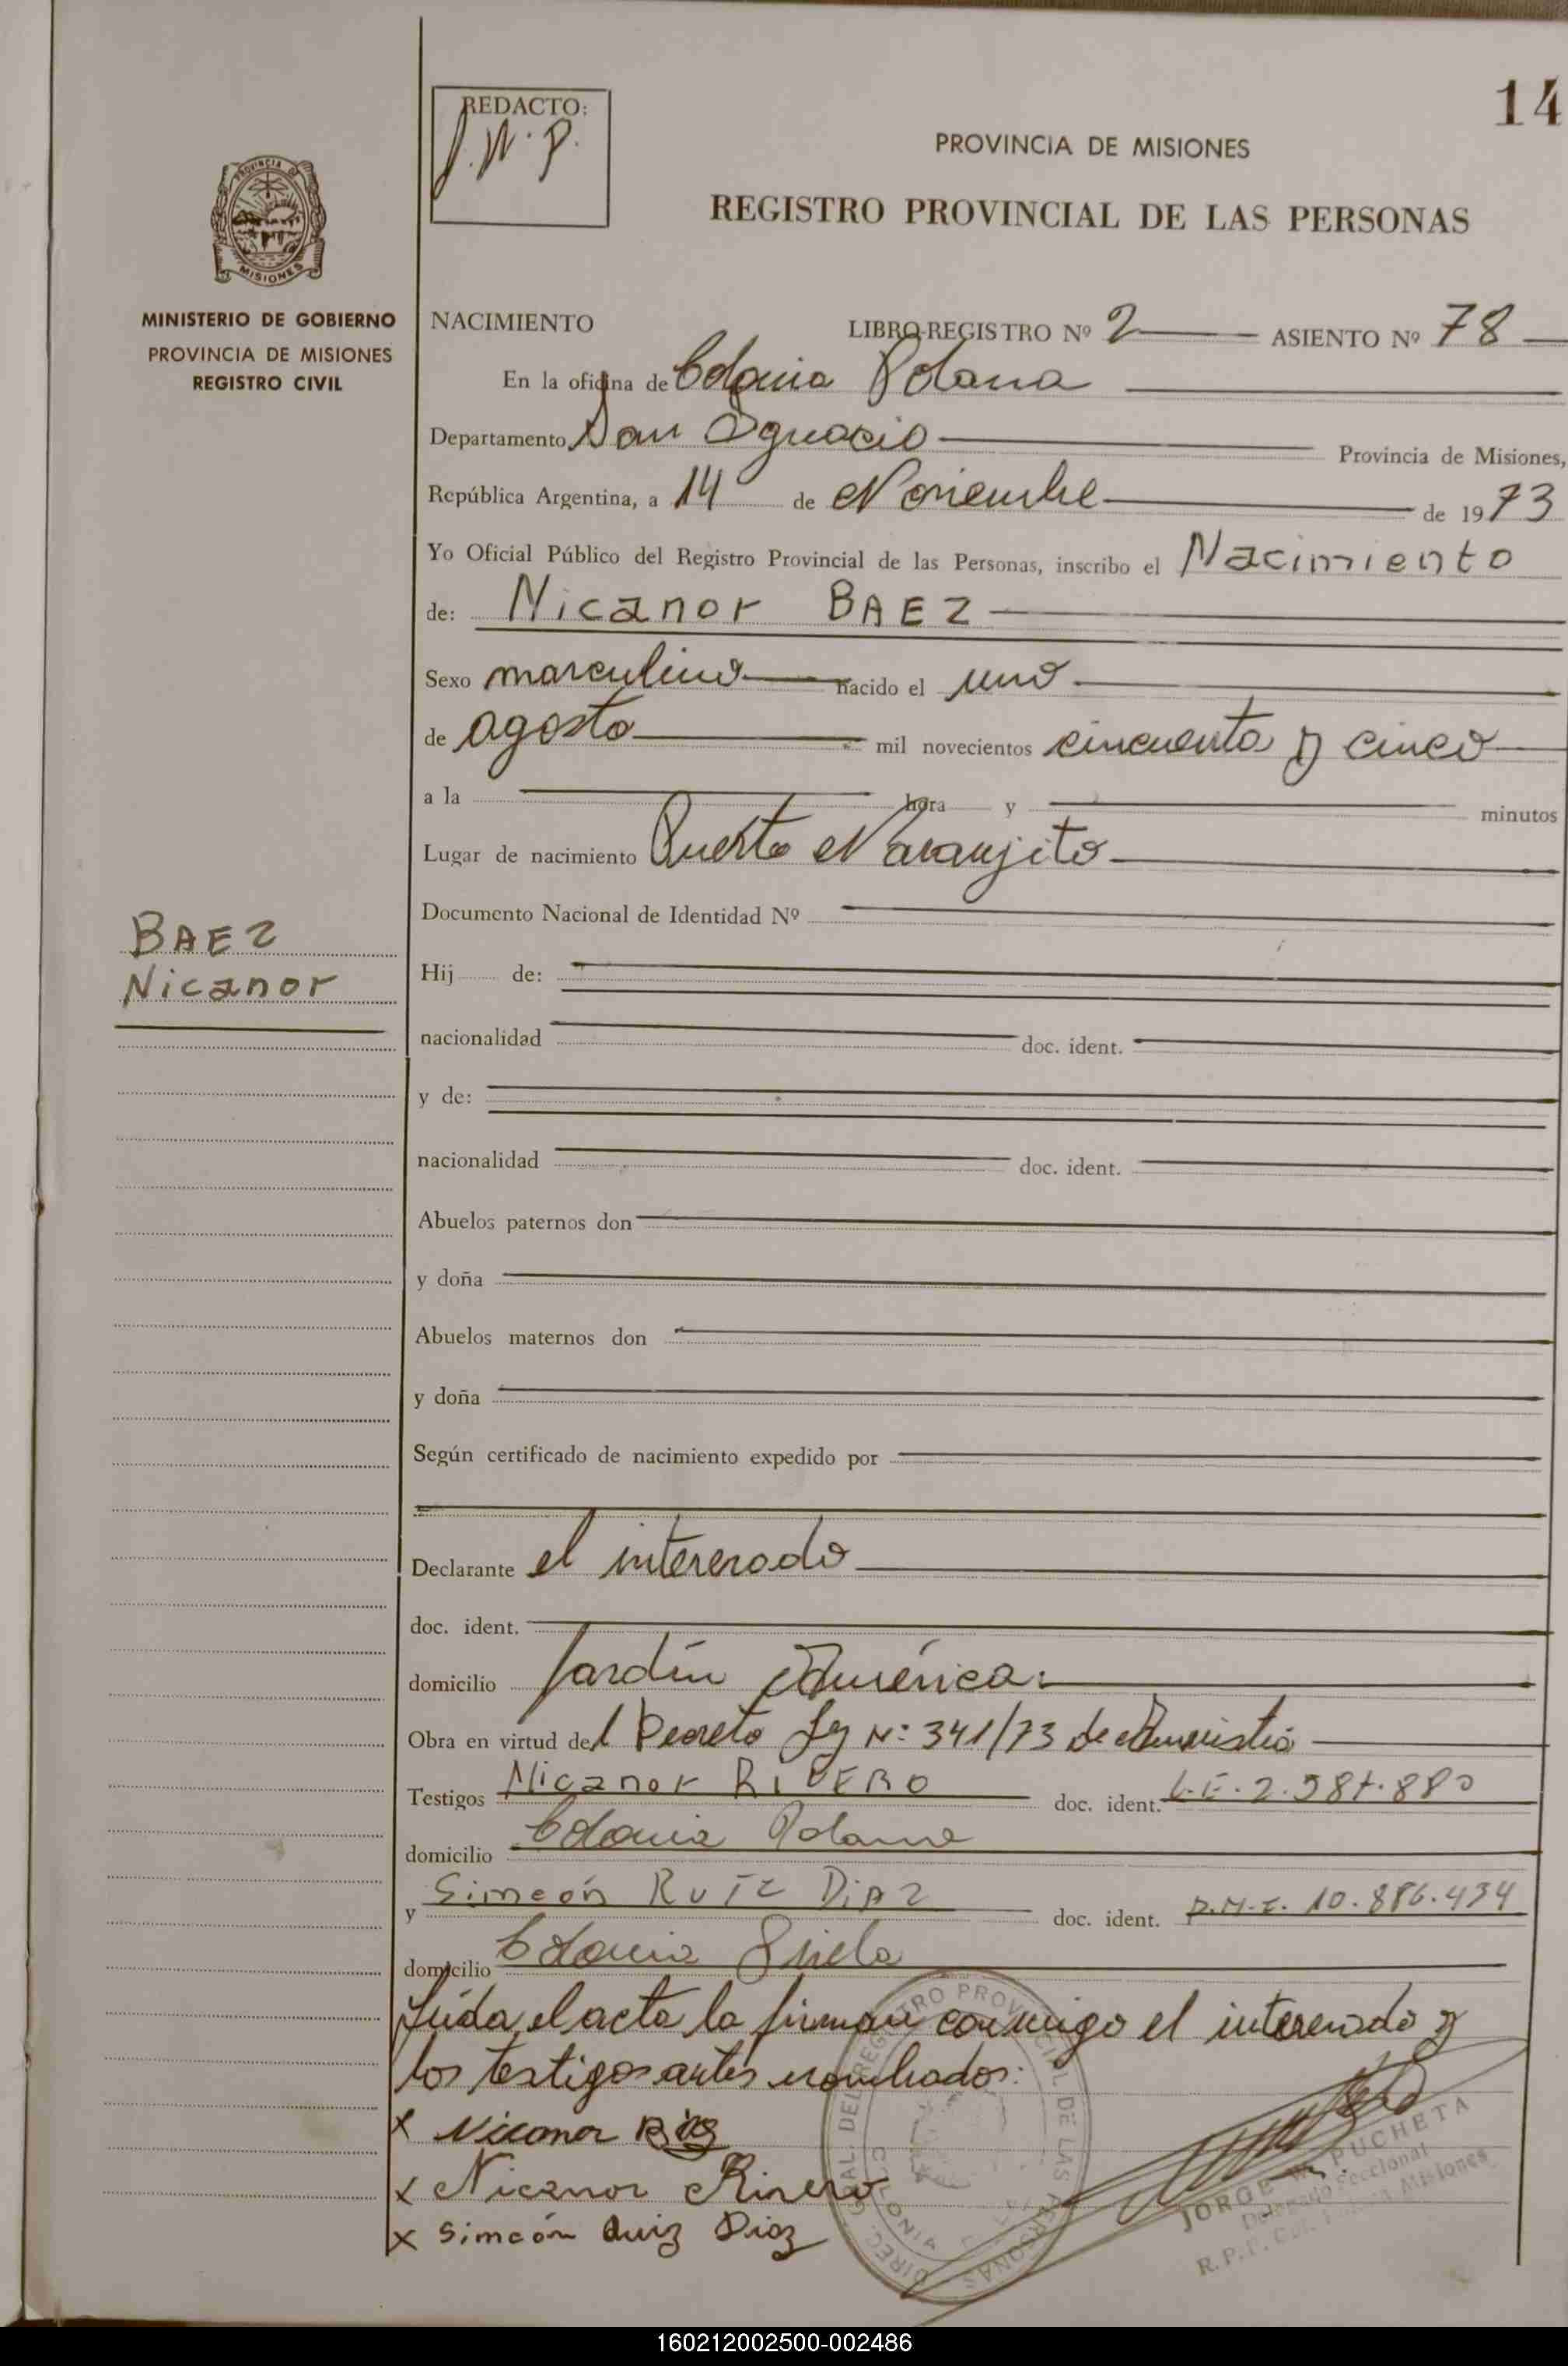 14
REDACTO:
J.W.P.
PROVINCIA DE MISIONES
REGISTRO PROVINCIAL DE LAS PERSONAS
PROVINCIA
MISIONES
MINISTERIO DE GOBIERNO
PROVINCIA DE MISIONES
REGISTRO CIVIL
NACIMIENTO LIBRO-REGISTRO Nº 2 ASIENTO Nº 78
En la oficina de Colonia Polana
Departamento San Ignacio Provincia de Misiones,
República Argentina, a 14 de Noviembre de 1973
Yo Oficial Público del Registro Provincial de las Personas, inscribo el Nacimiento
de: Nicanor BAEZ
Sexo masculino nacido el uno
de agosto mil novecientos cincuenta y cinco
a la hora y minutos
Lugar de nacimiento Puerto Naranjito
Documento Nacional de Identidad Nº
BAEZ
Nicanor
Hij de:
nacionalidad doc. ident.
y de:
nacionalidad doc. ident.
Abuelos paternos don
y doña
Abuelos maternos don
y doña
Según certificado de nacimiento expedido por
Declarante el interesado
doc. ident.
domicilio Jardín América
Obra en virtud del Decreto Ley Nº 341/73 de Amnistía
Testigos Nicanor RIVERO doc. ident. L.E. 2.587.880
domicilio Colonia Polana
y Simeón RUIZ DIAZ doc. ident. D.N.I. 10.886.434
domicilio Colonia
Leída el acta la firman conmigo el interesado y
los testigos antes nombrados:
x Nicanor Baez
x Nicanor Rivero
x Simeón Ruiz Diaz
DIREC. GRAL. DEL REGISTRO PROVINCIAL DE LAS PERSONAS
JORGE W. PUCHETA
Delegado Seccional
R.P.P. Col. Polana Misiones
160212002500-002486